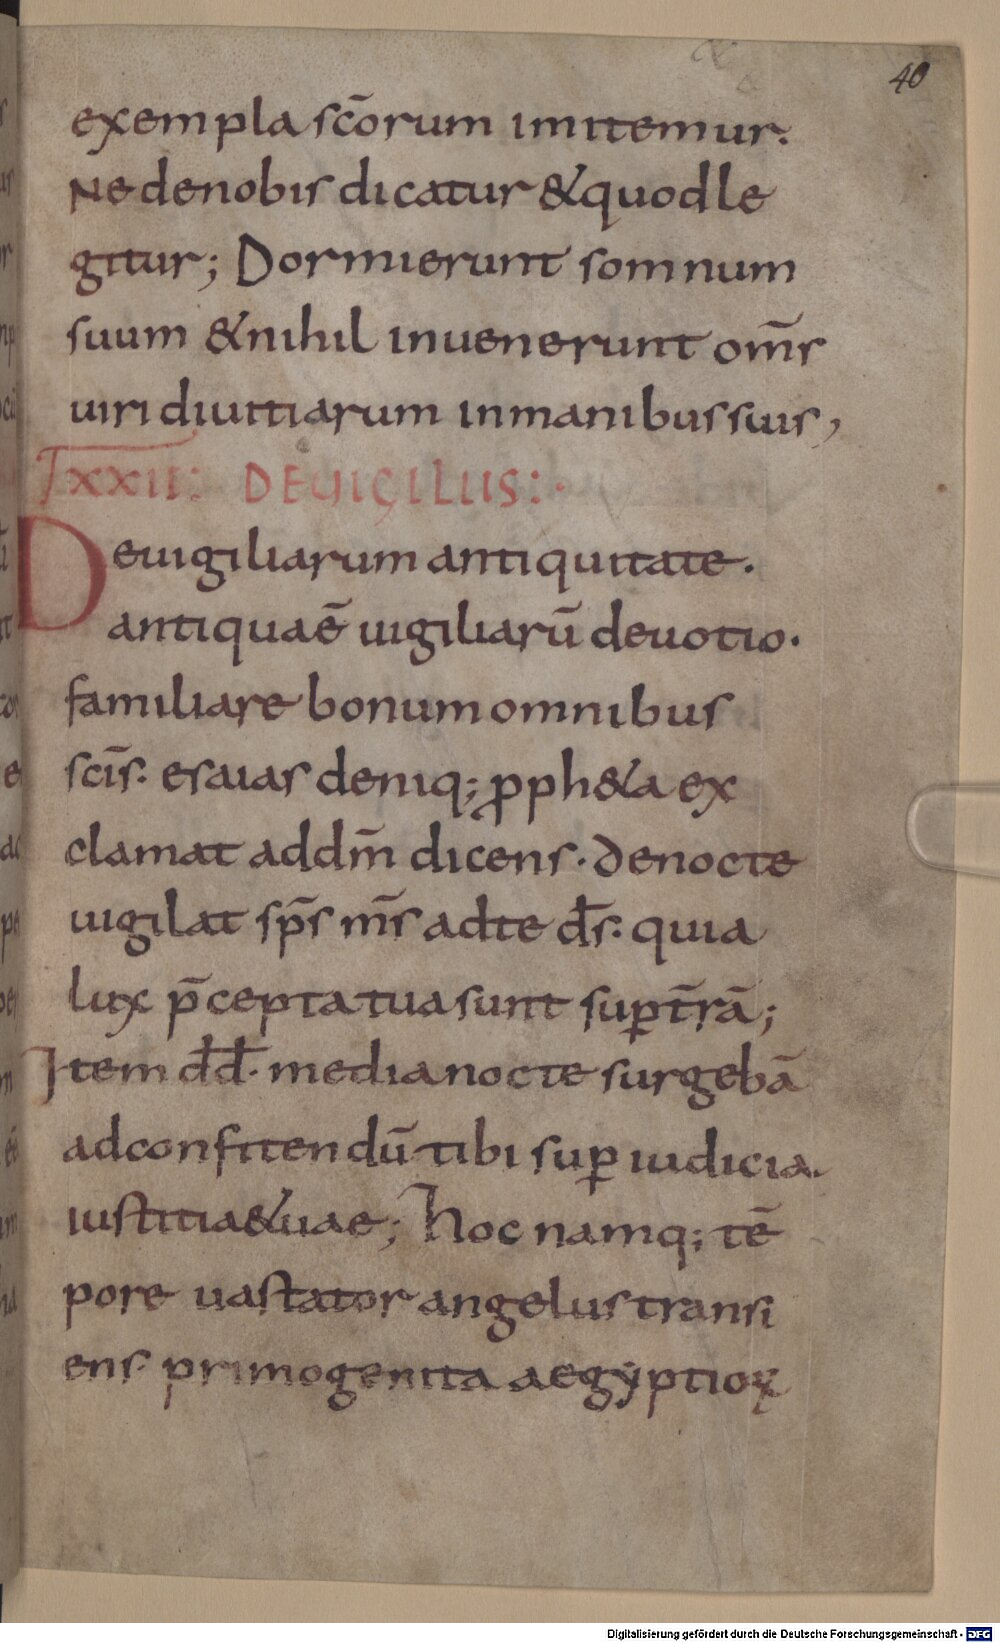 40
exempla scōrum imitemur.
Ne denobis dicatur & quod le
gitur; Dormierunt somnum
suum & nihil inuenerunt om̄s
uiri diuitiarum inmanibus suis,
XXII: DE UIGILIIS:
Deuigiliarum antiquitate.
antiqua ē uigiliarū deuotio.
familiare bonum omnibus
scīs. esaias deniq; pph&a ex
clamat ad dm̄ dicens. De nocte
uigilat sp̄s m̄s adte d̄s. quia
lux p̄cepta tua sunt sup t̄rā;
Item dd̄. media nocte surgebā
ad confitendū tibi sup iudicia.
iustitia&uae; hoc namq; tē
pore uastator angelus transi
ens. primogenita aegyptioꝝ
Digitalisierung gefördert durch die Deutsche Forschungsgemeinschaft - DFG